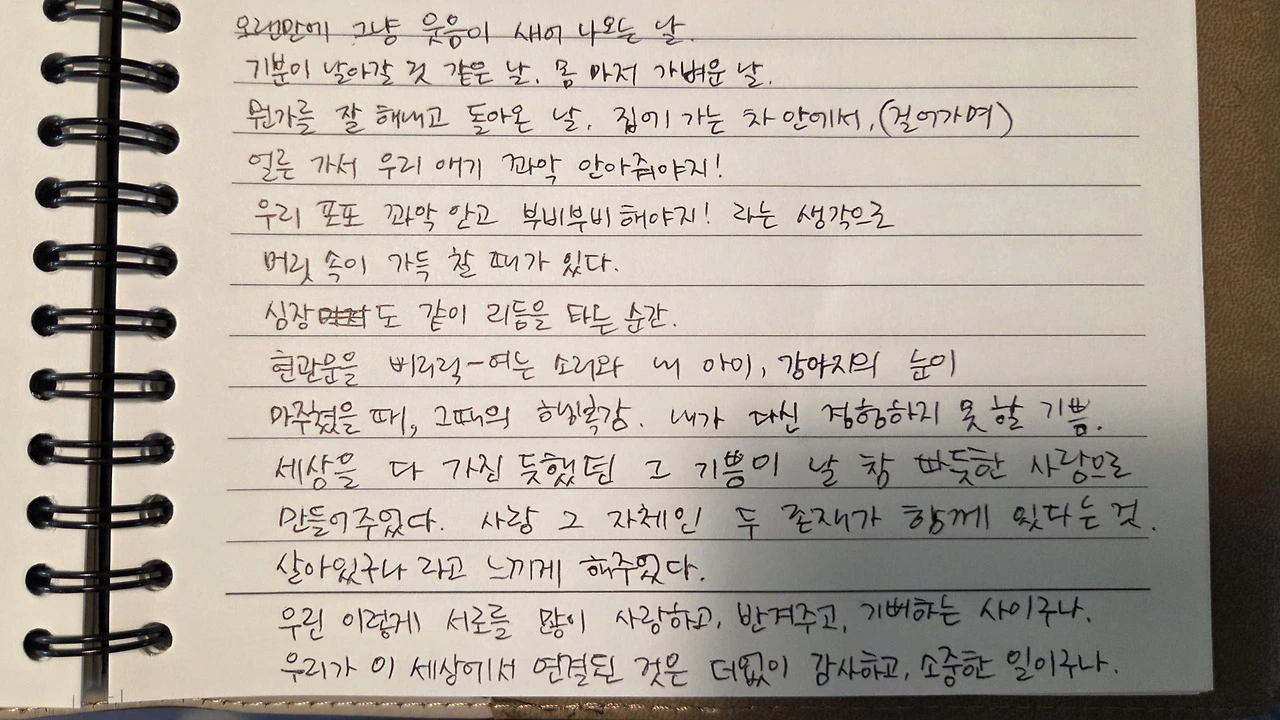 오랜만에 그냥 웃음이 새어 나오는 날.
기분이 날아갈 것 같은 날. 몸 마저 가벼운 날.
뭔가를 잘 해내고 돌아온 날. 집에 가는 차 안에서, (걸어가며)
얼른 가서 우리 애기 꽈악 안아줘야지!
우리 포포 꽈악 안고 부비부비해야지! 라는 생각으로
머릿 속이 가득 찰 때가 있다.
심장도 같이 리듬을 타는 순간.
현관문을 삐리릭-여는 소리와 내 아이, 강아지의 눈이
마주쳤을 때, 그때의 행복감. 내가 다신 경험하지 못 할 기쁨.
세상을 다 가진 듯했던 그 기쁨이 날 참 따듯한 사람으로
만들어주었다. 사랑 그 자체인 두 존재가 함께 있다는 것.
살아있구나 라고 느끼게 해주었다.
우린 이렇게 서로를 많이 사랑하고, 반겨주고, 기뻐하는 사이구나.
우리가 이 세상에서 연결된 것은 더없이 감사하고, 소중한 일이구나.